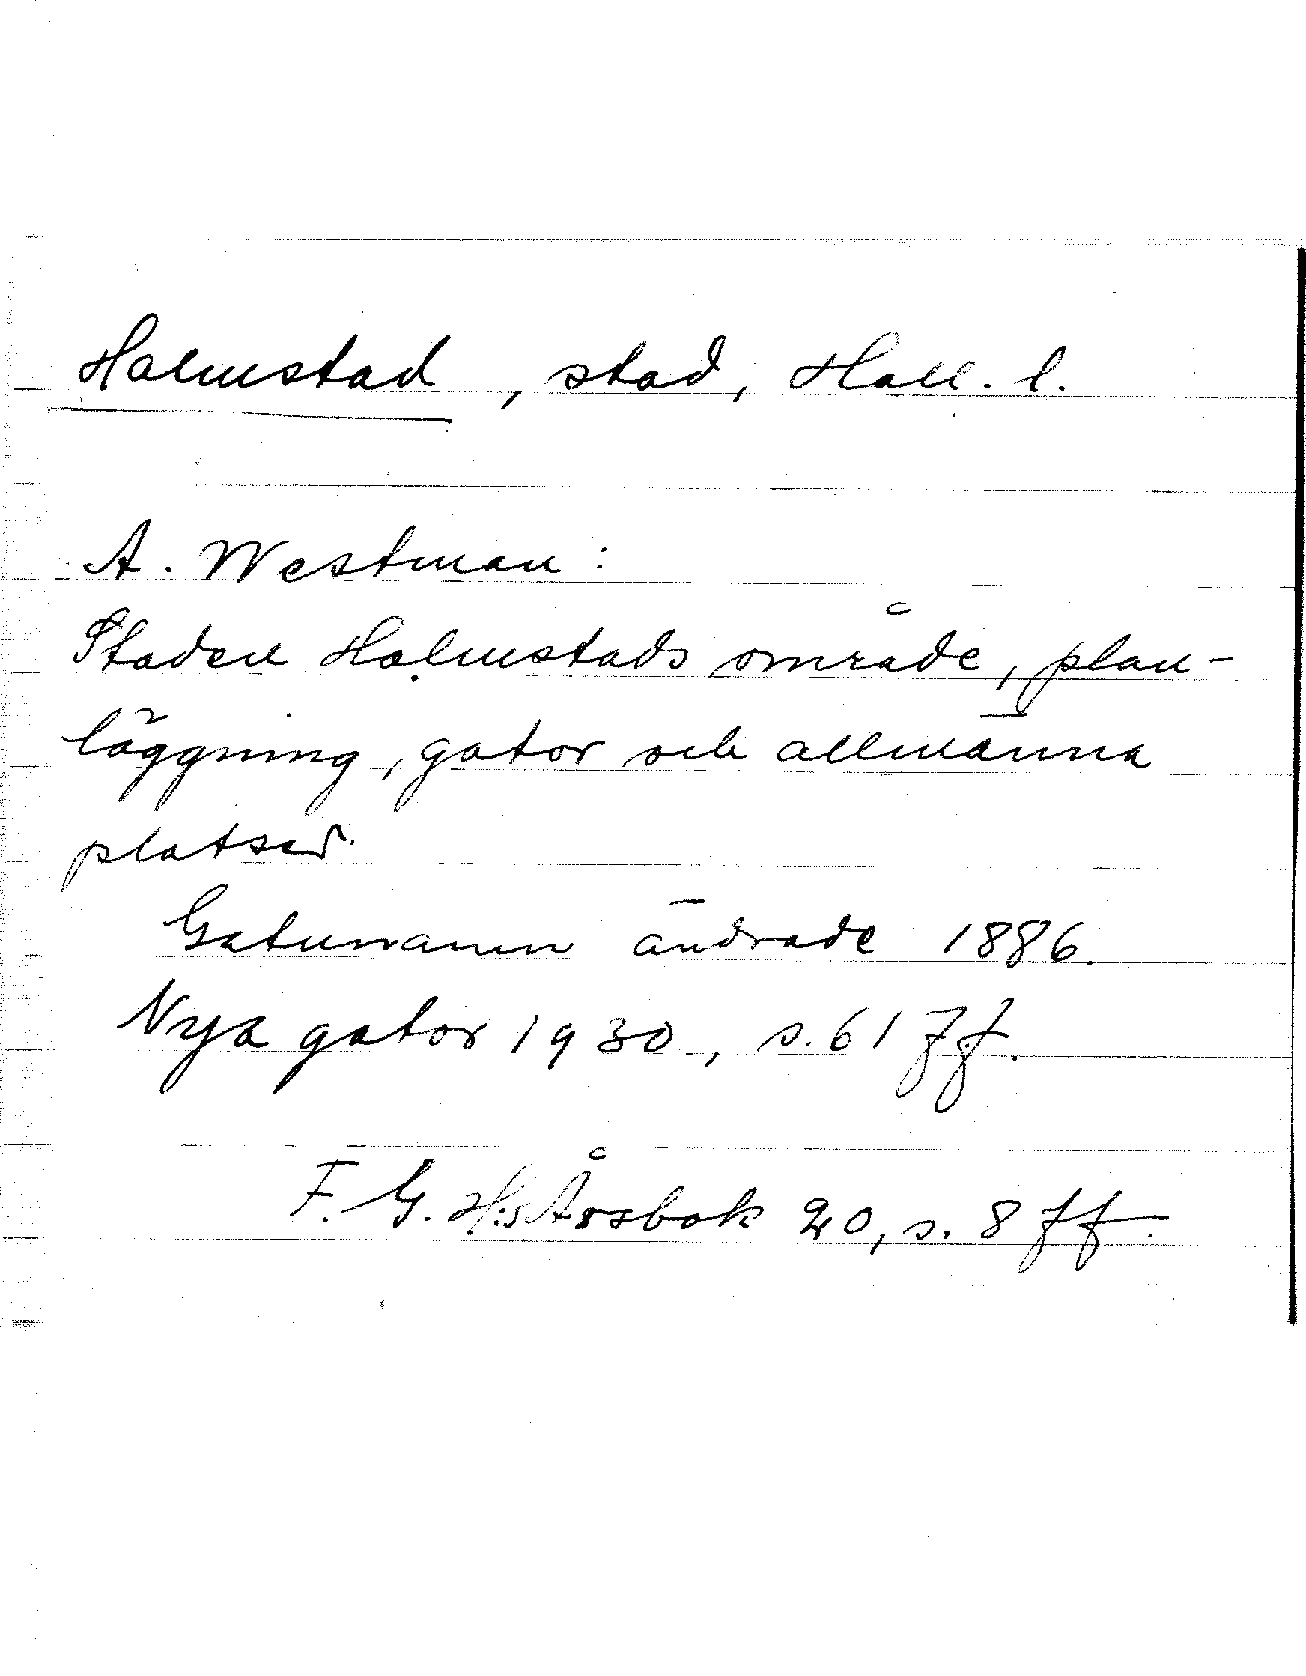 Halmstad, stad, Hall. l.
A. Westman:
Staden Halmstads område, plan-
läggning, gator och allmänna
platser.
Gatunamn ändrade 1886.
Nya gator 1930, s. 61 ff.
F. G. H:s Årsbok 20, s. 8 ff.